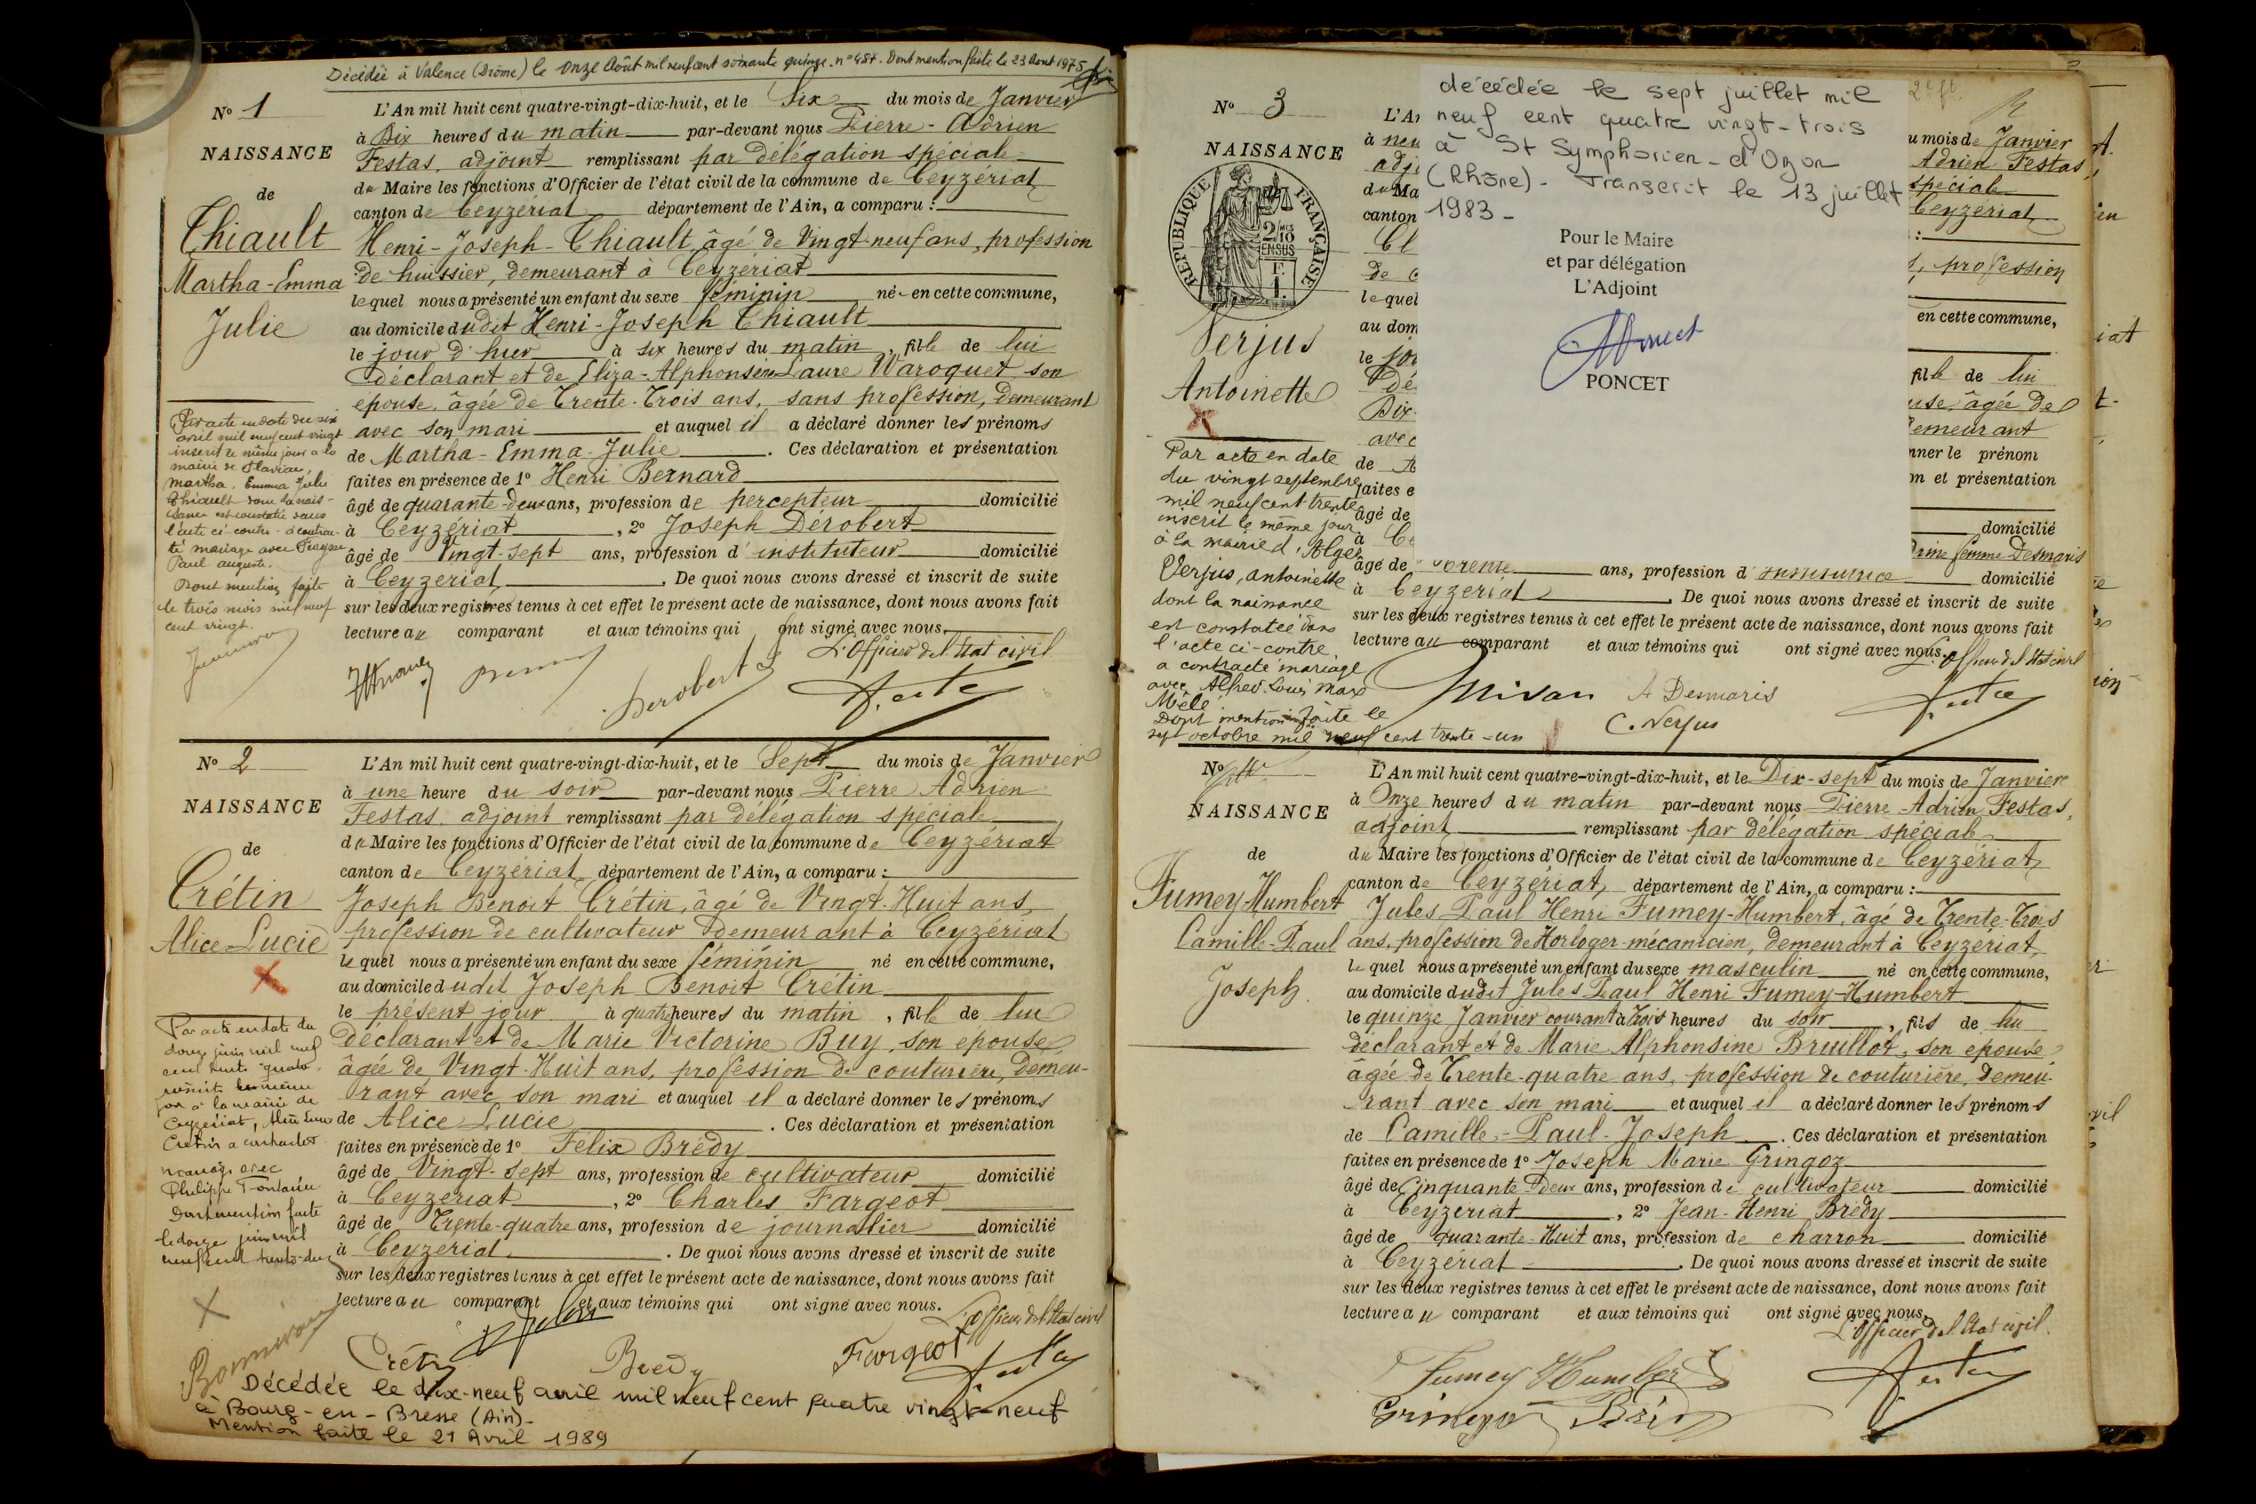 Décédée à Valence (Drôme) le onze Août mil neuf cent soixante quinze. n° 484. Dont mention faite le 23 Aout 1975
N° 1
NAISSANCE
de
Thiault
Martha-Emma
Julie
L'An mil huit cent quatre-vingt-dix-huit, et le Six du mois de Janvier
à Dix heures du matin par-devant nous Pierre-Adrien
Festas, adjoint remplissant par délégation spéciale
du Maire les fonctions d'Officier de l'état civil de la commune de Ceyzériat,
canton de Ceyzériat département de l'Ain, a comparu :
Henri-Joseph-Thiault, âgé de Vingt-neuf ans, profession
de huissier, demeurant à Ceyzériat
lequel nous a présenté un enfant du sexe féminin né en cette commune,
au domicile dudit Henri-Joseph Thiault
le jour d'hier à six heures du matin, fille de lui
déclarant et de Eliza-Alphonsine Laure Waroquet, son
epouse, âgée de Trente-Trois ans, sans profession, demeurant
avec son mari et auquel il a déclaré donner les prénoms
de Martha-Emma-Julie. Ces déclaration et présentation
faites en présence de 1° Henri Bernard
âgé de quarante-deux ans, profession de percepteur domicilié
à Ceyzériat, 2° Joseph Dérobert
âgé de Vingt-sept ans, profession d'instituteur domicilié
à Ceyzériat. De quoi nous avons dressé et inscrit de suite
sur les deux registres tenus à cet effet le présent acte de naissance, dont nous avons fait
lecture au comparant et aux témoins qui ont signé avec nous.
L'Officier de l'état civil
Derobert
Par acte en date du six
avril mil neuf cent vingt
inscrit le même jour à la
mairie de
Martha Emma Julie
Thiault dont la nais-
sance est constatée dans
l'acte ci-contre a contrac-
té mariage avec
Paul Auguste.
Dont mention faite
le trois mois mil neuf
cent vingt.
N° 2
NAISSANCE
de
Crétin
Alice Lucie
L'An mil huit cent quatre-vingt-dix-huit, et le Sept du mois de Janvier
à une heure du soir par-devant nous Pierre Adrien
Festas, adjoint remplissant par délégation spéciale
du Maire les fonctions d'Officier de l'état civil de la commune de Ceyzériat
canton de Ceyzériat, département de l'Ain, a comparu :
Joseph Benoit Crétin, âgé de Vingt-Huit ans,
profession de cultivateur demeurant à Ceyzériat
lequel nous a présenté un enfant du sexe féminin né en cette commune,
au domicile dudit Joseph Benoit Crétin
le présent jour à quatre heures du matin, fille de lui
déclarant et de Marie Victorine Buy, son epouse
âgée de Vingt-Huit ans, profession de couturière, demeu-
rant avec son mari et auquel il a déclaré donner les prénoms
de Alice Lucie. Ces déclaration et présentation
faites en présence de 1° Félix Brédy
âgé de Vingt-sept ans, profession de cultivateur domicilié
à Ceyzériat, 2° Charles Fargeot
âgé de Trente-quatre ans, profession de journalier domicilié
à Ceyzériat. De quoi nous avons dressé et inscrit de suite
sur les deux registres tenus à cet effet le présent acte de naissance, dont nous avons fait
lecture au comparant et aux témoins qui ont signé avec nous.
L'Officier de l'état civil
Crétin
Bredy
Fargeot
Par acte en date du
douze juin mil neuf
cent
à la mairie de
Ceyzériat, Alice Lucie
Crétin a contracté
mariage avec
Philippe Fontaine
Dont mention faite
le douze juin mil
neuf cent trente-deux
Décédée le dix-neuf avril mil neuf cent quatre vingt-neuf
à Bourg-en-Bresse (Ain)-
Mention faite le 21 Avril 1989
N° 3
NAISSANCE
RÉPUBLIQUE FRANÇAISE
2/10 EN SUS
Verjus
Antoinette
décédée le sept juillet mil
neuf cent quatre vingt-trois
à St Symphorien-d'Ozon
(Rhône)- Transcrit le 13 juillet
1983-
Pour le Maire
et par délégation
L'Adjoint
PONCET
L'A
à neu
adj
du Ma
canton
lequel
au dom
avec
faites e
âgé de
du mois de Janvier
Adrien Festas
spéciale
Ceyzériat,
profession
en cette commune,
fille de lui
âgée de
demeurant
nner le prénom
et présentation
domicilié
femme Desmaris
âgé de trente ans, profession d' domicilié
à Ceyzériat. De quoi nous avons dressé et inscrit de suite
sur les deux registres tenus à cet effet le présent acte de naissance, dont nous avons fait
lecture au comparant et aux témoins qui ont signé avec nous.
L'Officier de l'état civil
A Desmaris
C. Verjus
Par acte en date
du vingt septembre
mil neuf cent trente
inscrit le même jour
à la mairie d'Alger
Verjus, Antoinette
dont la naissance
est constatée dans
l'acte ci-contre,
a contracté mariage
avec Alfred Louis Max
Dont mention faite le
sept octobre mil neuf cent trente-un
N°
NAISSANCE
de
Fumey Humbert
Camille-Paul
Joseph
L'An mil huit cent quatre-vingt-dix-huit, et le Dix-sept du mois de Janvier
à Onze heures du matin par-devant nous Pierre-Adrien Festas,
adjoint remplissant par délégation spéciale
du Maire les fonctions d'Officier de l'état civil de la commune de Ceyzériat,
canton de Ceyzériat, département de l'Ain, a comparu :
Jules Paul Henri Fumey-Humbert, âgé de Trente-Trois
ans, profession de Horloger-mécanicien, demeurant à Ceyzériat,
lequel nous a présenté un enfant du sexe masculin né en cette commune,
au domicile dudit Jules Paul Henri Fumey-Humbert
le quinze Janvier courant à trois heures du soir, fils de lui
déclarant et de Marie Alphonsine Bruillot, son epouse
âgée de Trente-quatre ans, profession de couturière, demeu-
rant avec son mari et auquel il a déclaré donner les prénoms
de Camille-Paul-Joseph. Ces déclaration et présentation
faites en présence de 1° Joseph Marie Gringoz
âgé de Cinquante-Deux ans, profession de cultivateur domicilié
à Ceyzériat, 2° Jean-Henri Brédy
âgé de quarante-Huit ans, profession de charron domicilié
à Ceyzériat. De quoi nous avons dressé et inscrit de suite
sur les deux registres tenus à cet effet le présent acte de naissance, dont nous avons fait
lecture au comparant et aux témoins qui ont signé avec nous.
L'Officier de l'état civil.
Fumey Humbert